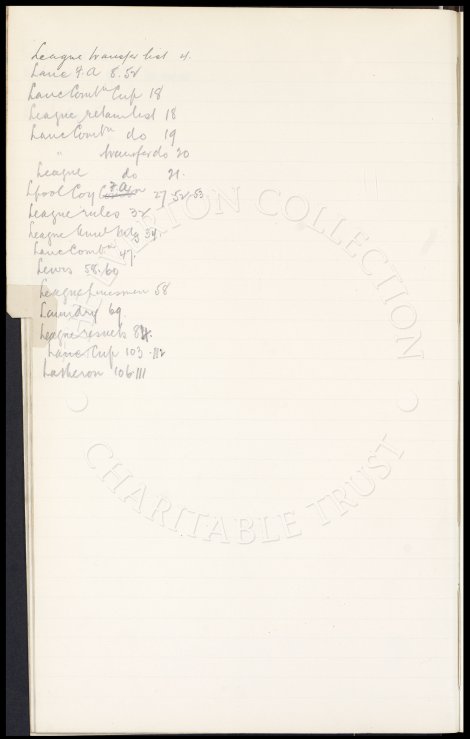 League transfer list 4.
Lanc F.A 8.52
Lanc Combn Cup 18
League retain list 18
Lanc Combn do 19
" transfer do 20
League do 21.
Lpool Coy F.A. 27.52.53
League rules 32
League Annl Mtg 34.
Lanc Combn 47.
Lewis 58.60
League linesmen 68
Laundry 69
League results 84.
Lanc. Cup 103.112
Latheron 106.111
EVERTON COLLECTION
CHARITABLE TRUST